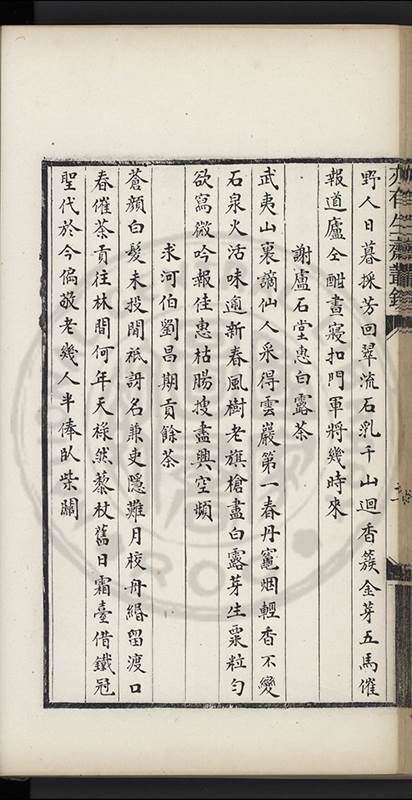 野人日暮採芳回翠流石乳千山迴香簇金芽五馬催
報道廬仝酣晝寢扣門軍將幾時來
謝盧石堂惠白露茶
武夷山裏謫仙人采得雲巖第一春丹竈烟輕香不變
石泉火活味逾新春風樹老旗槍盡白露芽生粟粒勻
欲寫微吟報佳惠枯腸搜盡興空頻
求河伯劉昌期貢餘茶
蒼顏白髮未投閒祗訝名兼吏隱難月校舟緡留渡口
春催茶貢往林間何年天祿然藜杖舊日霜臺借鐵冠
聖代於今偏敬老幾人半俸臥柴關